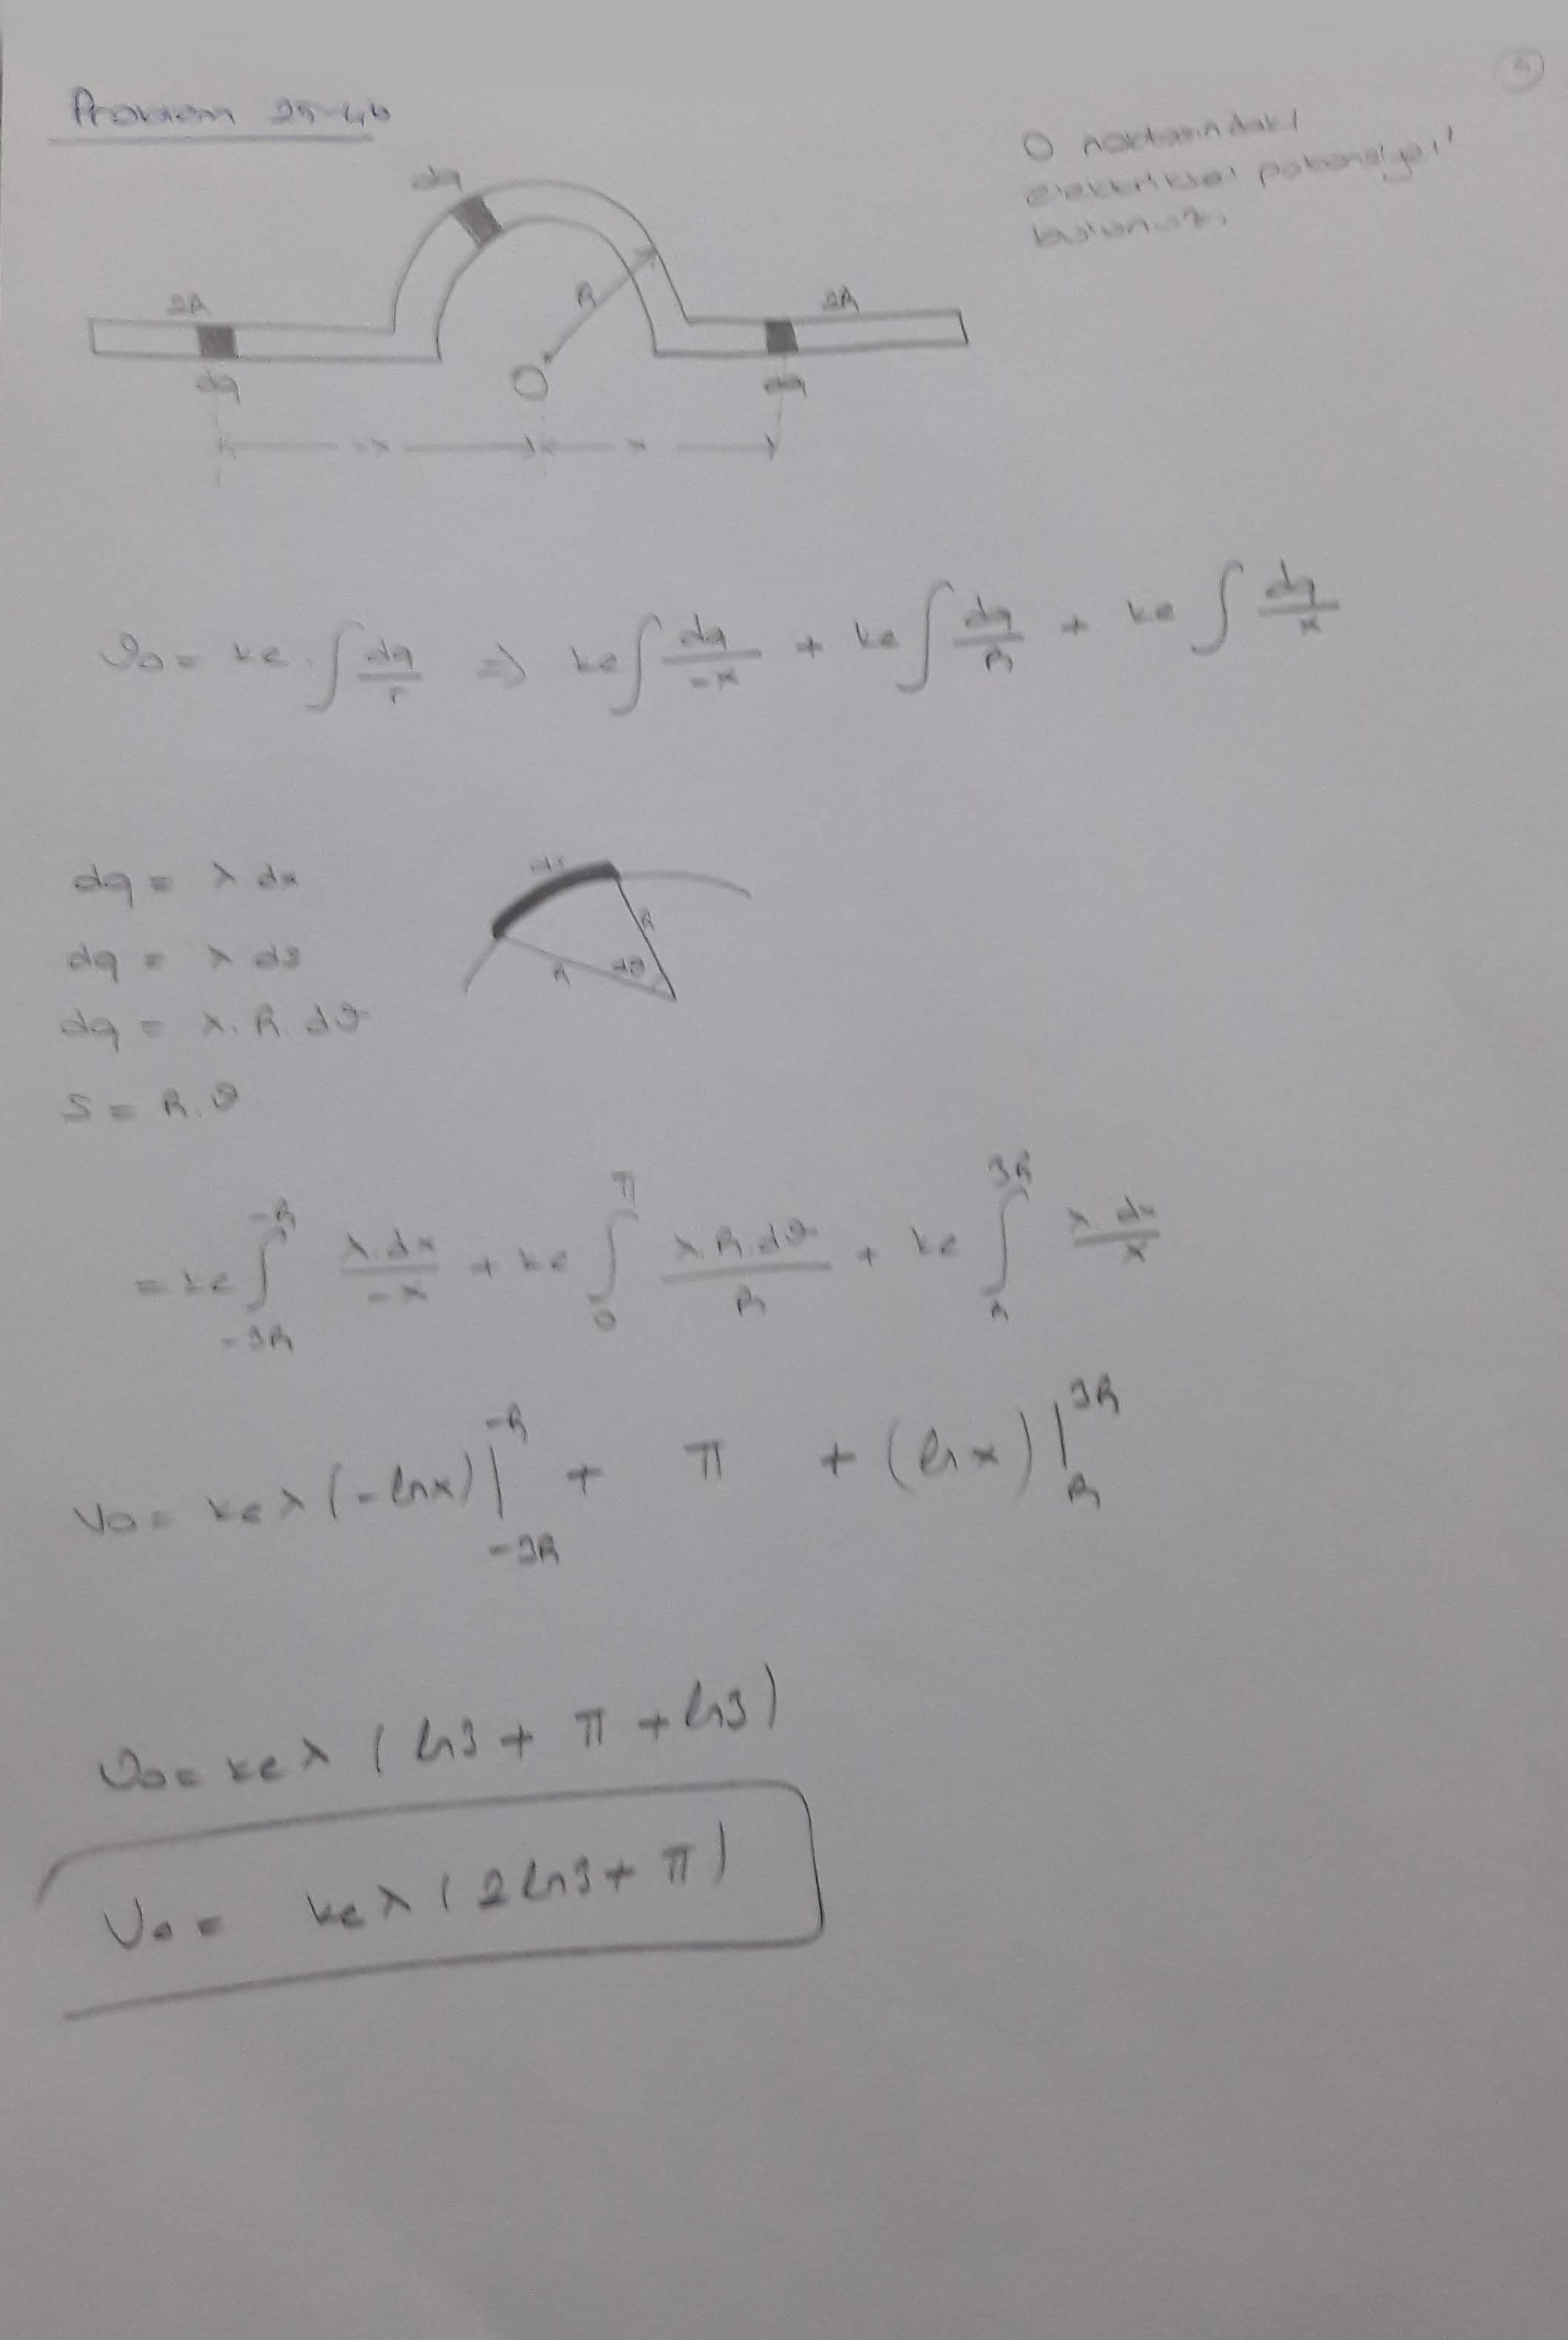 5
Problem 25-46
O noktasındaki
elektriksel potansiyeli
bulunuz.
dq
R
2R
2R
dq
O
dq
-x
x
V₀ = ke . ∫ dq/r ⇒ ke ∫ dq/-x + ke ∫ dq/R + ke ∫ dq/x
dq = λ dx
dq = λ ds
dq = λ. R. dθ
S = R. θ
ds
R
R
dθ
= ke ∫_{-3R}^{-R} λ.dx/-x + ke ∫_0^π λ.R.dθ/R + ke ∫_R^{3R} λ.dx/x
V₀ = ke λ (-lnx)|_{-3R}^{-R} + π + (lnx)|_R^{3R}
V₀ = ke λ (ln3 + π + ln3)
V₀ = ke λ (2 ln3 + π)